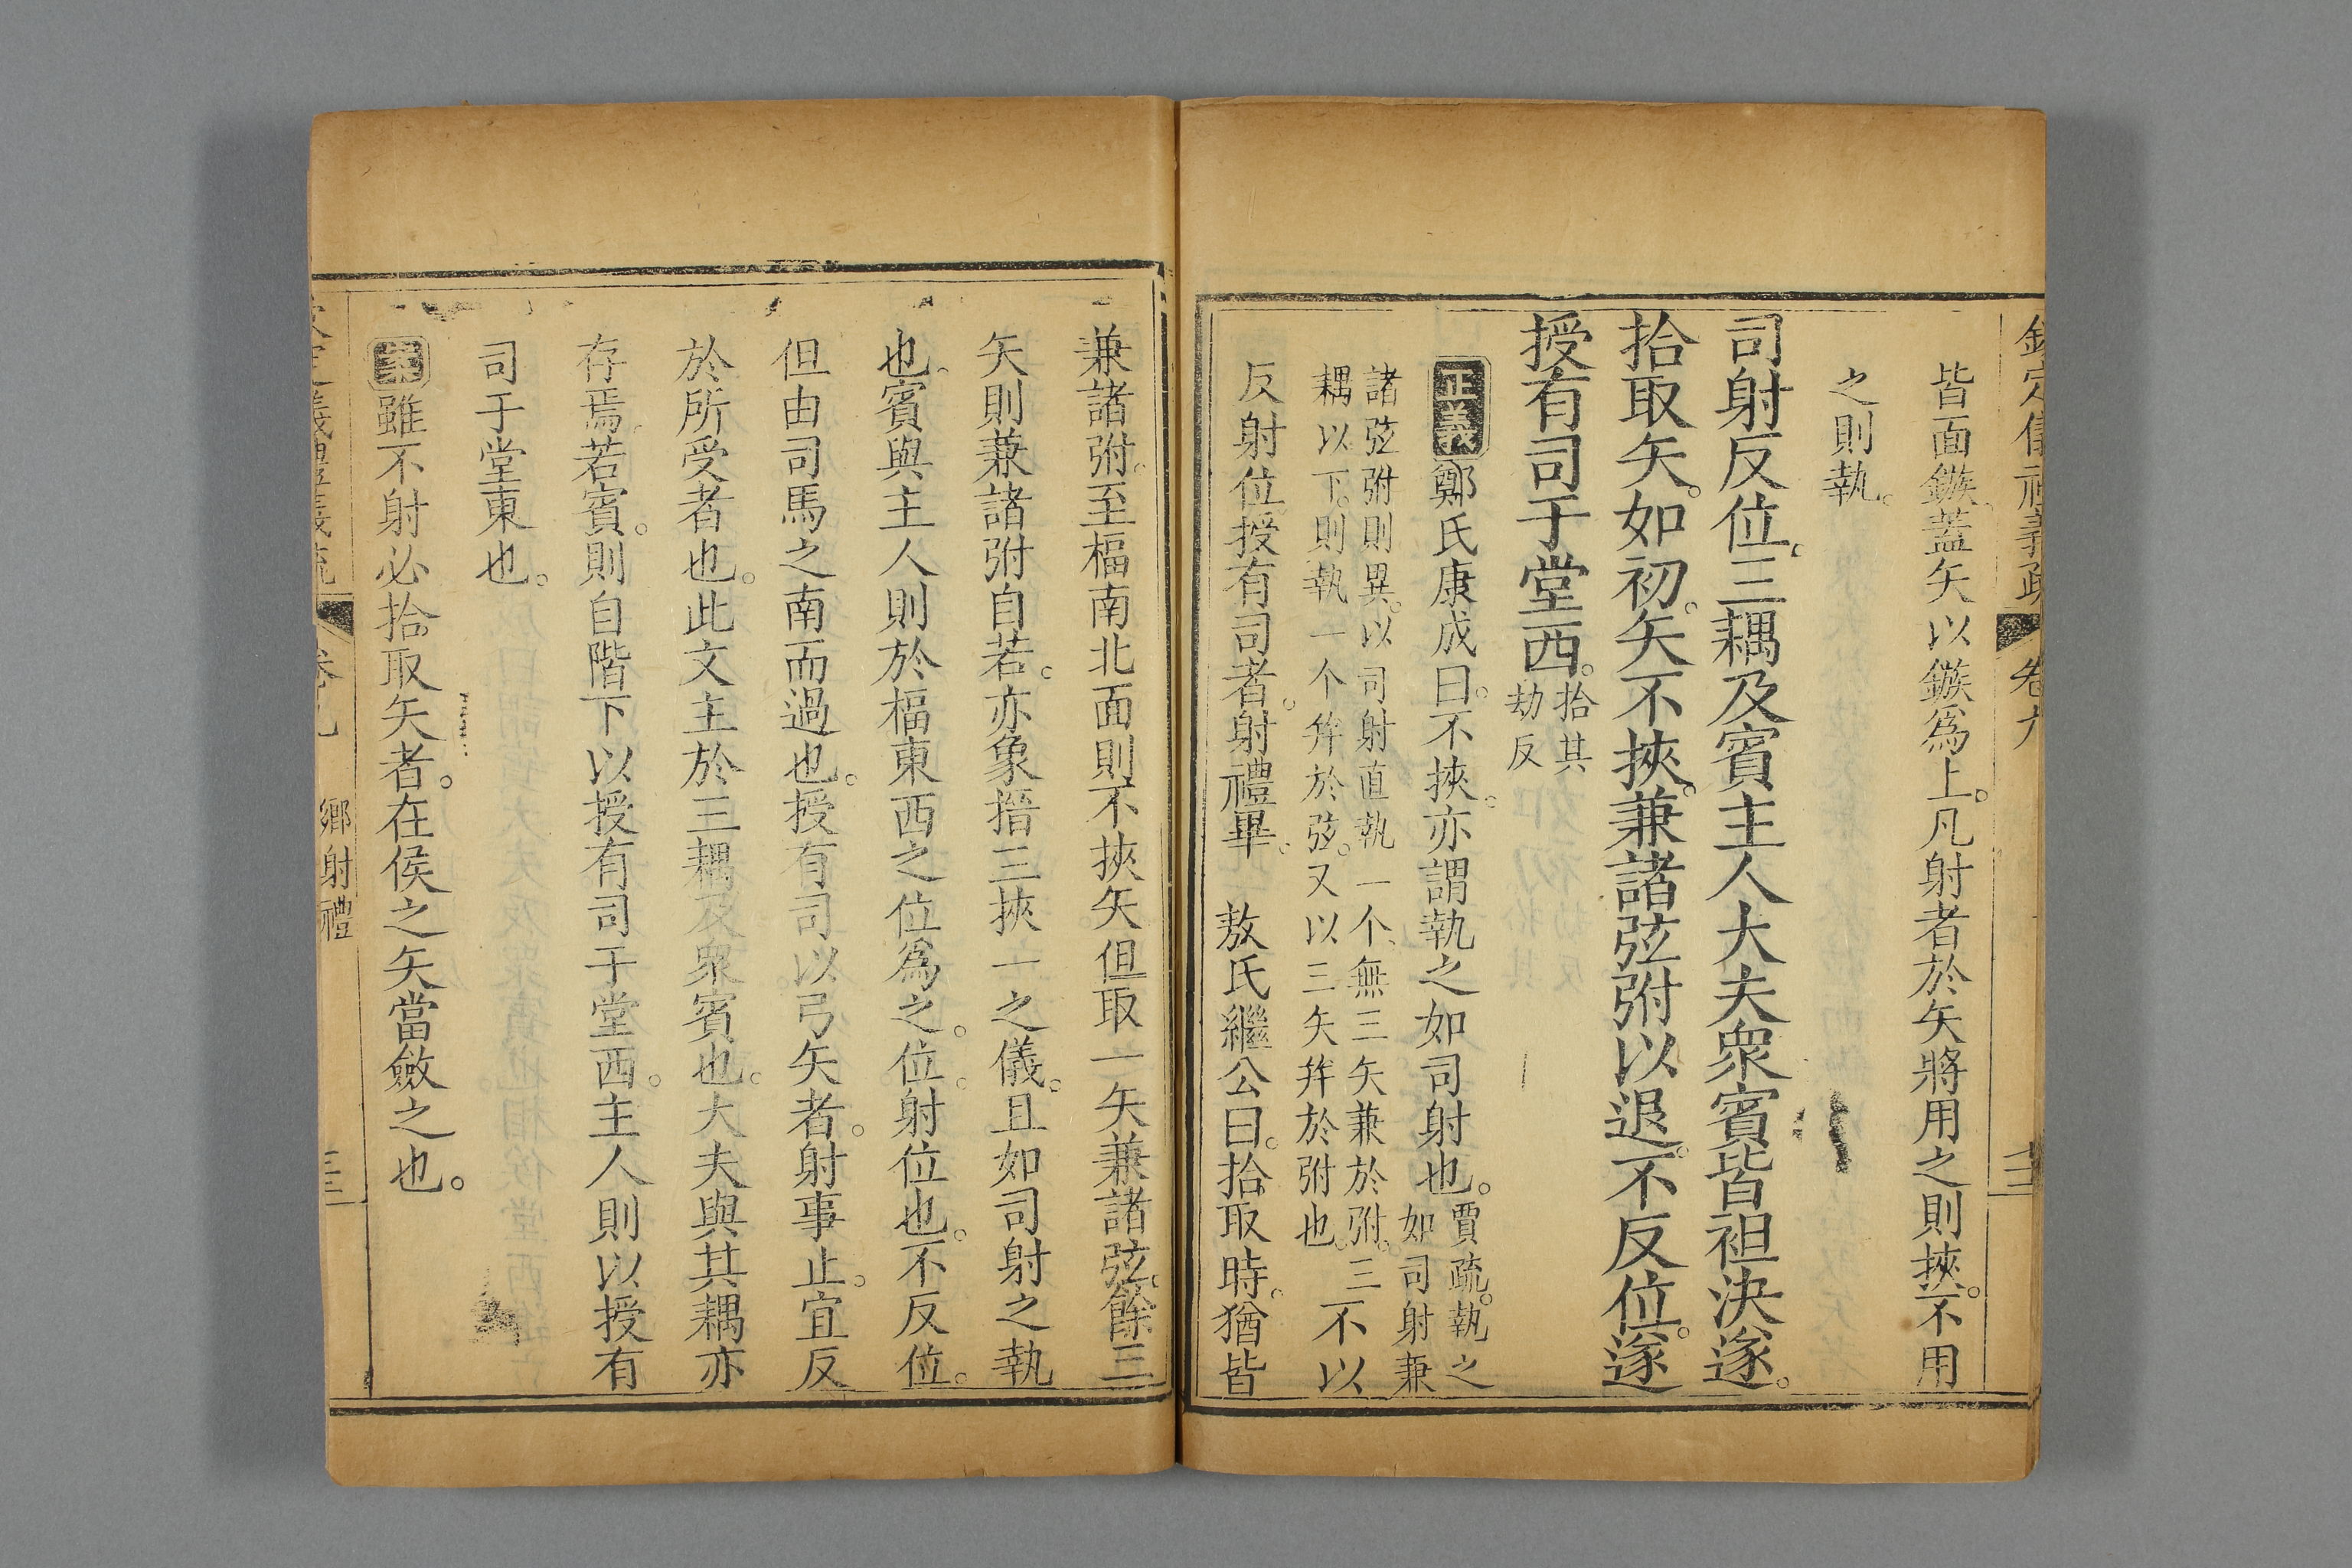 欽定儀禮義疏 卷九
皆面鏃。蓋矢以鏃爲上。凡射者於矢將用之則挾。不用
之則執。
司射反位。三耦及賓主人大夫衆賓皆袒決遂。
拾取矢。如初。矢不挾。兼諸弦弣以退。不反位。遂
授有司于堂西。拾其
劫反
正義鄭氏康成曰。不挾。亦謂執之如司射也。賈疏。執之
如司射兼
諸弦弣則異。以司射直執一个、無三矢兼於弣。三
耦以下。則執一个。𢆉於弦。又以三矢𢆉於弣也。不以
反射位授有司者。射禮畢。 敖氏繼公曰。拾取時。猶皆
兼諸弣。至楅南北面則不挾矢但取一矢兼諸弦。餘三
矢則兼諸弣自若。亦象搢三挾一之儀。且如司射之執
也。賓與主人則於楅東西之位爲之。位。射位也。不反位。
但由司馬之南而過也。授有司以弓矢者。射事止。宜反
於所受者也。此文主於三耦及衆賓也。大夫與其耦亦
存焉。若賓。則自階下以授有司于堂西。主人則以授有
司于堂東也。
案雖不射必拾取矢者。在侯之矢當斂之也。
卷九 鄉射禮